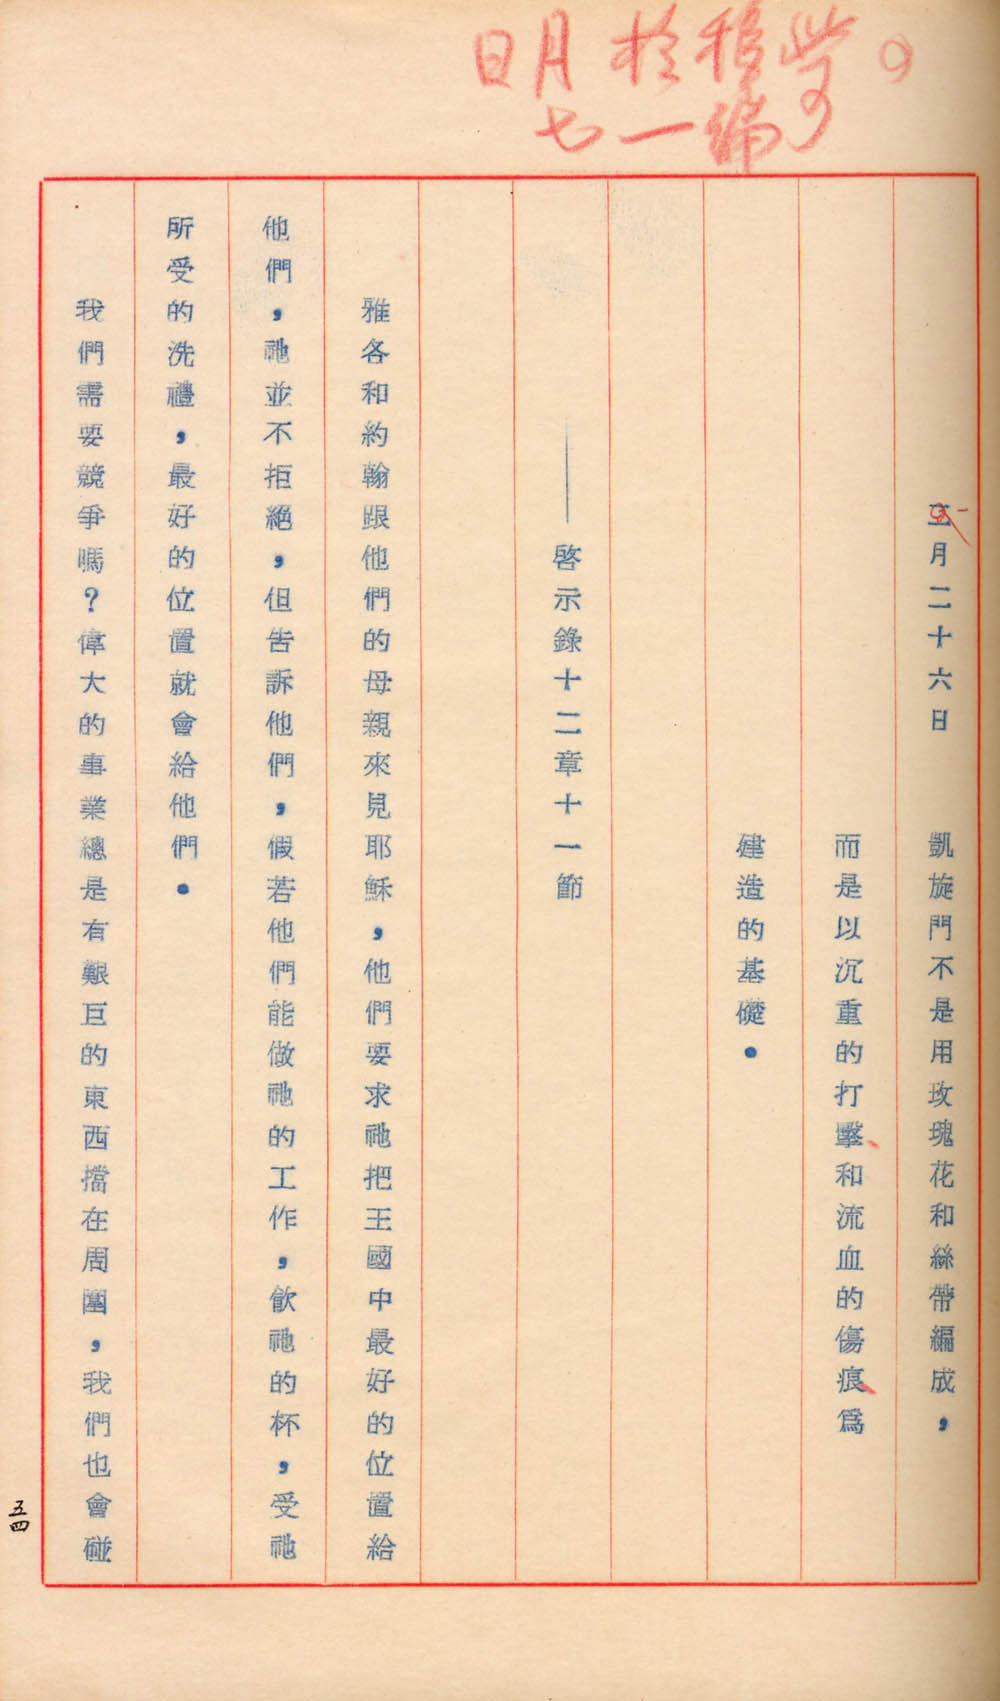 此可移編於一月七日
月二十六日　凱旋門不是用玫瑰花和絲帶編成，
而是以沉重的打擊和流血的傷痕爲
建造的基礎．
——啓示錄十二章十一節
雅各和約翰跟他們的母親來見耶穌，他們要求祂把王國中最好的位置給
他們，祂並不拒絕，但告訴他們，假若他們能做祂的工作，飲祂的杯，受祂
所受的洗禮，最好的位置就會給他們．
我們需要競爭嗎？偉大的事業總是有艱巨的東西擋在周圍，我們也會碰
五四